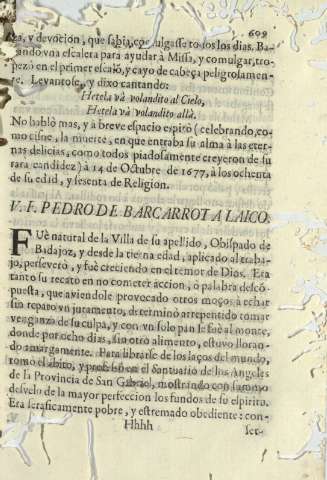 609
za, y devocion, que sabia, comulgasse todos los dias. Ba-
xando vna escalera para ayudar à Missa, y comulgar, tro-
pezò en el primer escalò, y cayo de cabeça peligrosamen-
te. Levantose, y dixo cantando:
Hetela và volandito al Cielo,
Hetela và volandito allà.
No hablò mas, y a breve espacio espirò (celebrando, co-
mo cisne, la muerte, en que entraba su alma à las eter-
nas delicias, como todos piadosamente creyeron de su
rara candidez) à 14 de Octubre de 1677, à los ochenta
de su edad, y sesenta de Religion.
V. F. PEDRO DE BARCARROTA LAICO.
FUè natural de la Villa de su apellido, Obispado de
Badajoz, y desde la tierna edad, aplicado al traba-
jo, perseverò, y fuè creciendo en el temor de Dios. Era
tanto su recato en no cometer accion, ò palabra descô-
puesta, que aviendole provocado otros moços à echar
sin reparo vn juramento, determinò arrepentido tomar
venganza de su culpa, y con vn solo pan se fuè al monte,
donde por ocho dias, sin otro alimento, estuvo lloran-
do amargamente. Para librarse de los laços del mundo,
tomo el abito, y professò en el Santuario de los Angeles
de la Provincia de San Gabriel, mostrando con sumo
desvelo de la mayor perfeccion los fundos de su espiritu.
Era seraficamente pobre, y estremado obediente: con-
Hhhh
ser-